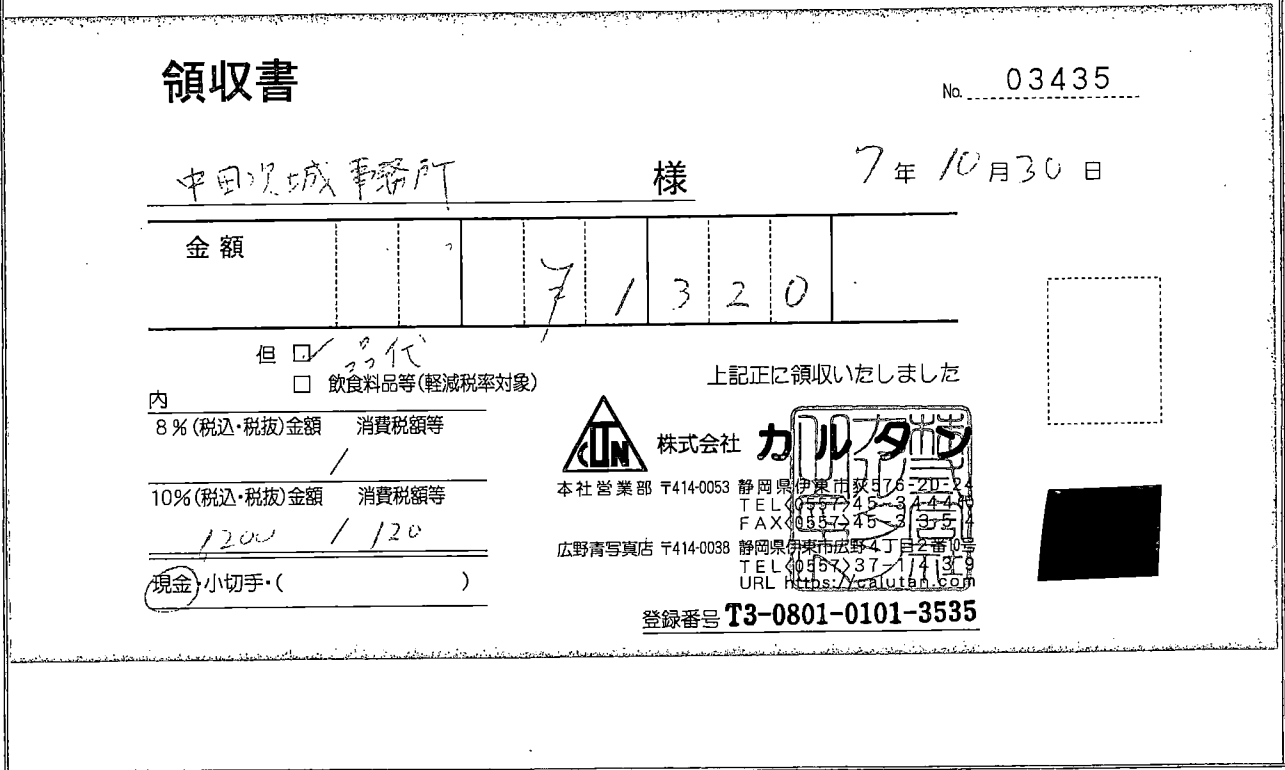 領収書
No. 03435
中田次城事務所 様
7年10月30日
金額 ¥1320
但 ☑ 品代
□ 飲食料品等(軽減税率対象)
上記正に領収いたしました
内
8%(税込・税抜)金額 消費税額等
/
10%(税込・税抜)金額 消費税額等
1200 / 120
現金・小切手・( )
CTN 株式会社 カルタン
本社営業部 〒414-0053 静岡県伊東市荻576-20-24
TEL<0557>45-3444
FAX<0557>45-3354
広野青写真店 〒414-0038 静岡県伊東市広野4丁目2番10号
TEL<0557>37-1439
URL https://calutan.com
登録番号 T3-0801-0101-3535